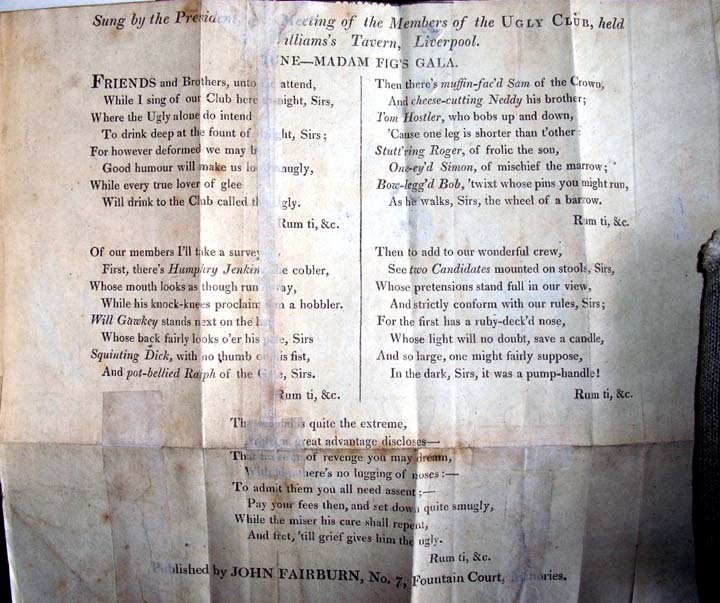 Sung by the President, Meeting of the Members of the UGLY CLUB, held
Tavern, Liverpool.
TUNE—MADAM FIG'S GALA.
FRIENDS and Brothers, unto attend,
While I sing of our Club here to-night, Sirs,
Where the Ugly alone do intend
To drink deep at the fount of Sirs;
For however deformed we may be
Good humour will make us look smugly,
While every true lover of glee
Will drink to the Club called the Ugly.
Rum ti, &c.
Of our members I'll take a survey
First, there's Humphry Jenkins, the cobler,
Whose mouth looks as though run away,
While his knock-knees proclaim him a hobbler.
Will Gawkey stands next on the
Whose back fairly looks o'er his Sirs
Squinting Dick, with no thumb on his fist,
And pot-bellied Ralph of the Sirs.
Rum ti, &c.
Then there's muffin-fac'd Sam of the Crown,
And cheese-cutting Neddy his brother;
Tom Hostler, who bobs up and down,
'Cause one leg is shorter than t'other:
Stutt'ring Roger, of frolic the son,
One-ey'd Simon, of mischief the marrow;
Bow-legg'd Bob, 'twixt whose pins you might run,
As he walks, Sirs, the wheel of a barrow.
Rum ti, &c.
Then to add to our wonderful crew,
See two Candidates mounted on stools, Sirs,
Whose pretensions stand full in our view,
And strictly conform with our rules, Sirs;
For the first has a ruby-deck'd nose,
Whose light will no doubt, save a candle,
And so large, one might fairly suppose,
In the dark, Sirs, it was a pump-handle!
Rum ti, &c.
The is quite the extreme,
great advantage discloses—
That of revenge you may dream,
there's no lugging of noses:—
To admit them you all need assent;—
Pay your fees then, and set down quite smugly,
While the miser his care shall repent,
And fret, 'till grief gives him the ugly.
Rum ti, &c.
Published by JOHN FAIRBURN, No. 7, Fountain Court, Minories.